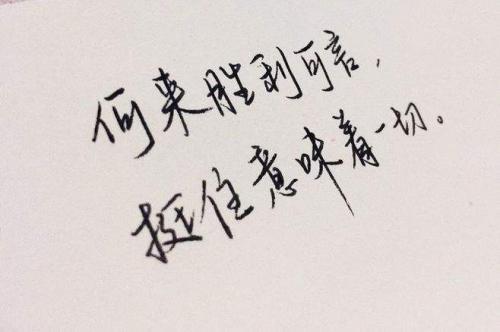 何来胜利可言,
挺住意味着一切。